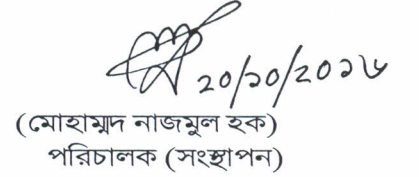 ২০/১০/২০১৬
(মোহাম্মদ নাজমুল হক)
পরিচালক (সংস্থাপন)